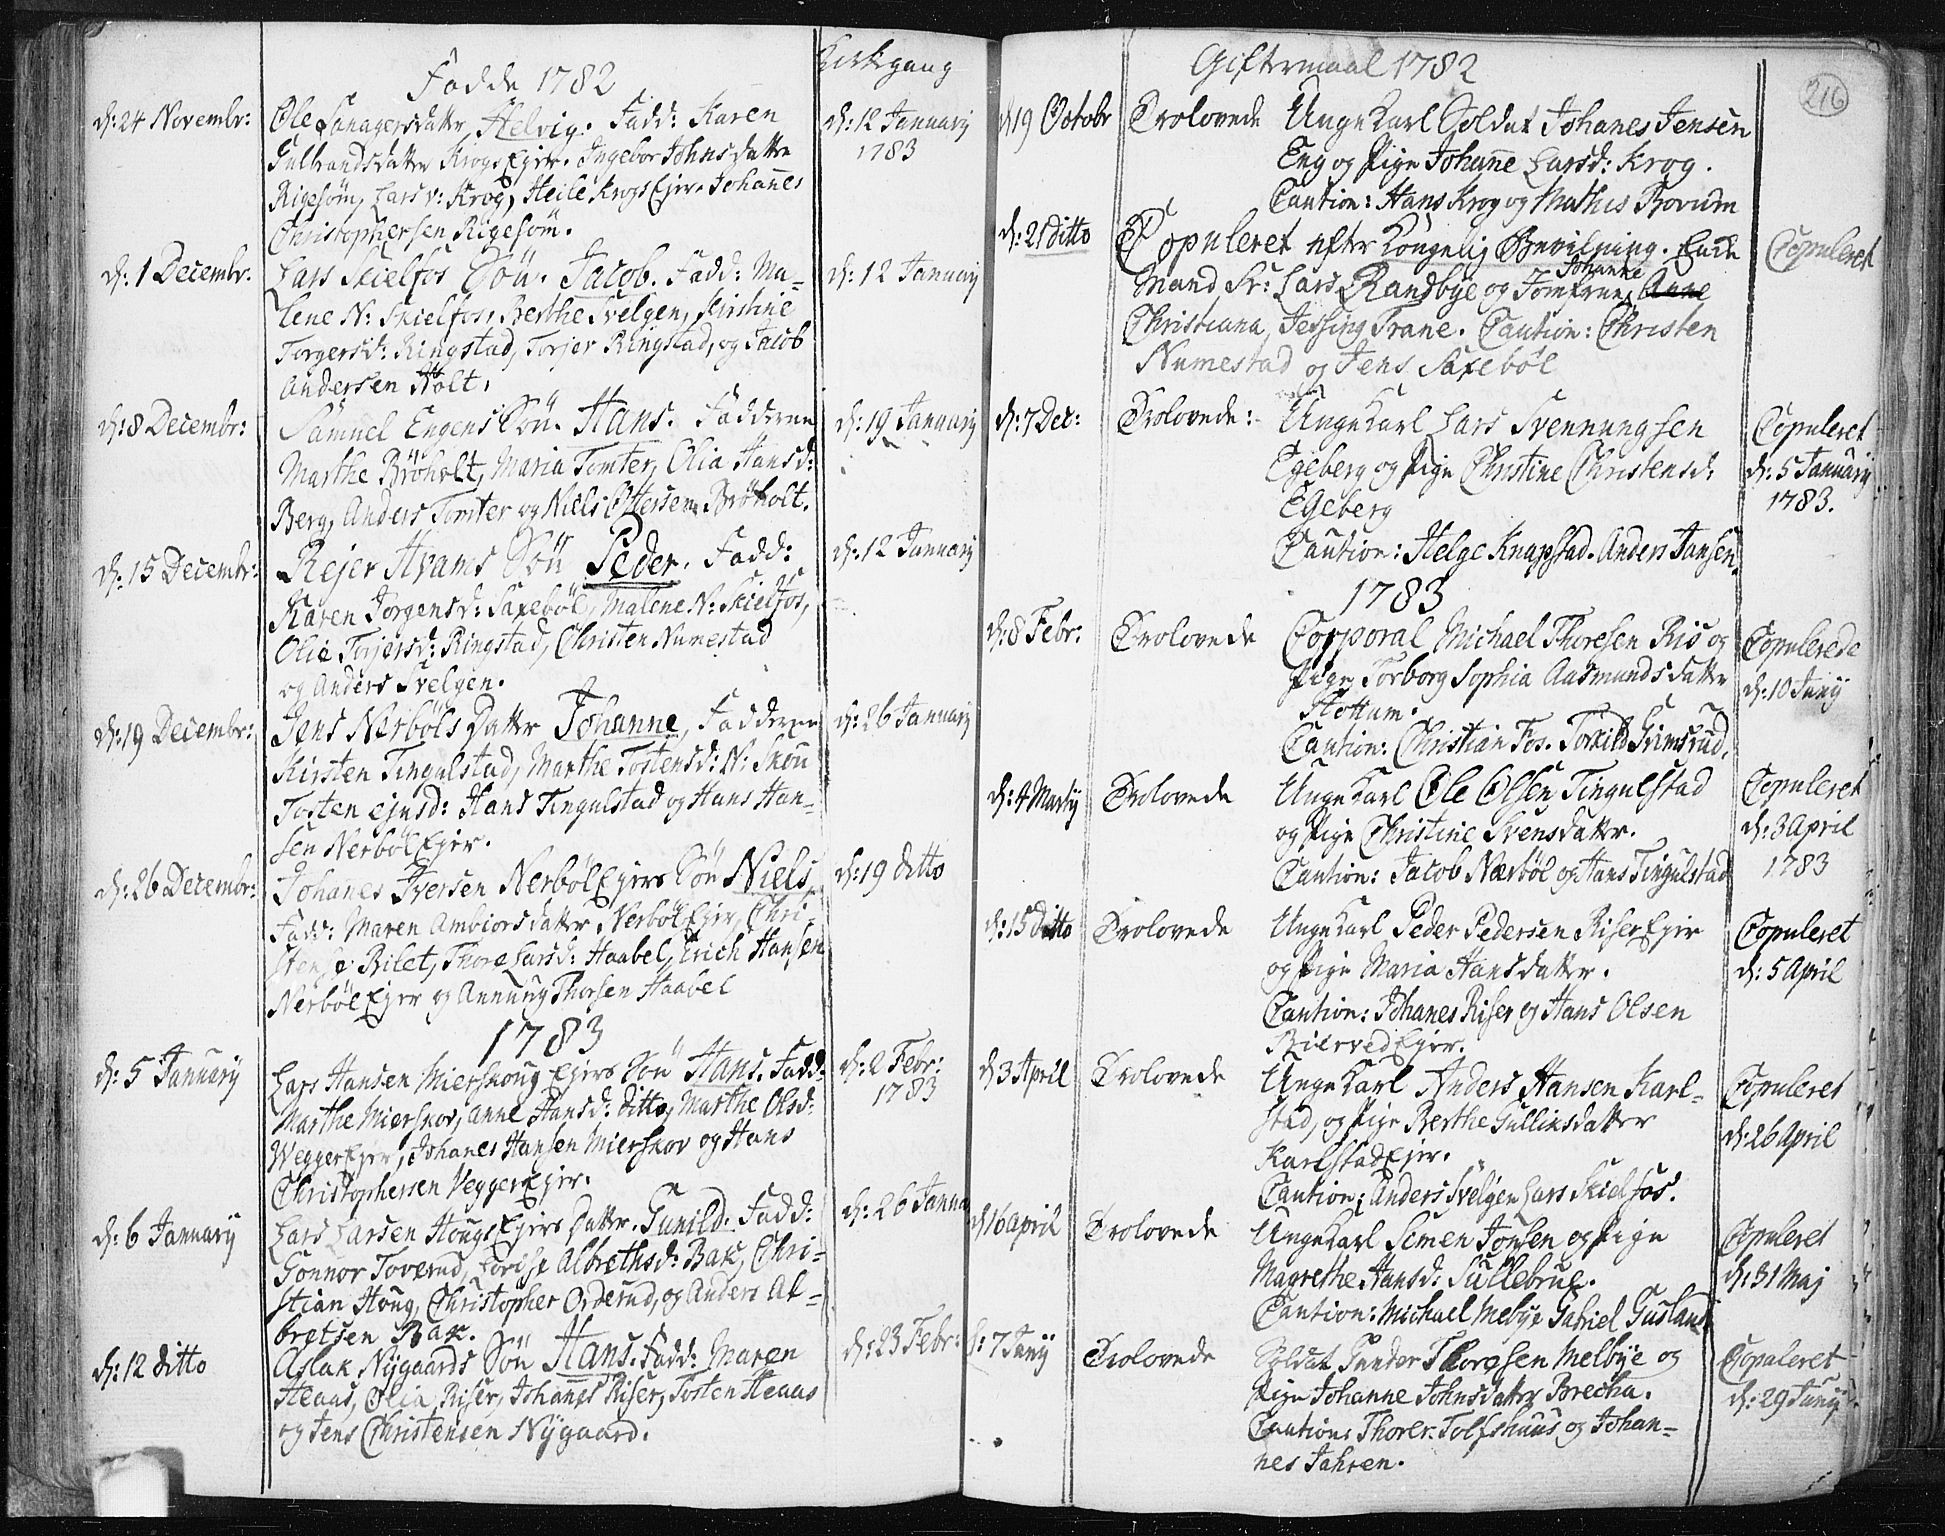 Fadde 1782
Kirkgang
d: 24 Novembr:
Ole Lanagersdattr Helvig. Fadd: Karen
Gulbrandsdattr Krogs Ejer. Ingebor Johnsdattr
Rigesøm, Lars v: Krog, Heile Krogs Ejer. Johanes
Christophersen Rigesøm.
d: 12 January
1783
d: 1 Decembr:
Lars Skielfos Søn. Jacob. Fadd: Ma-
lene N: Skielfos, Berthe Svelgen, Kirstine
Torgersd: Ringstad, Torjer Ringstad, og Jacob
Andersen Holt.
d: 12 January
d: 8 Decembr:
Samuel Engens Søn. Hans. Faddrene
Marthe Brøholt, Maria Tomter, Olia Hansd:
Berg, Anders Tomter og Niels Ottersen Brøholt.
d: 19 January
d: 15 Decembr:
Rejer Hvams Søn Peder. Fadd:
Karen Jørgensd: Saxebøl, Malene N: Skielfos,
Olie Torjersd: Ringstad, Christen Numestad
og Anders Svelgen.
d: 12 January
d: 19 Decembr:
Jens Nerbøls Dattr Johanne, Faddrene
Kirsten Tingulstad, Marthe Tostensd: N: Skou
Tosten ejusd: Hans Tingulstad og Hans Han-
sen Nerbøl Ejer.
d: 26 January
d: 26 Decembr:
Johanes Iversen Nerbøl Ejers Søn Niels,
Fadd: Maren Ambiorsdattr Nerbøl Ejer, Chri-
stense Rilet, Thore Larsd: Haabel, Erich Hansen
Nerbøl Ejer og Annung Thorsen Haabel
d: 19 ditto
1783
d: 5 January
Lars Hansen Mierskoug Ejers Søn Hans. Fadd:
Marthe Mierskov, Anne Hansd: ditto, Marthe Olsd:
Wegger Ejer, Johanes Hansen Mierskov og Hans
Christophersen Vegger Ejer.
d: 2 Febr:
1783
d: 6 January
Lars Larsen Hougs Ejers Dattr. Gunild. Fadd:
Gonnor Toverud, Lovise Albrethsd: Bak, Chri-
stian Houg, Christopher Orderud, og Anders Al-
bretsen Bak.
d: 26 Janua
d: 12 ditto
Aslak Nygaards Søn Hans. Fadd: Maren
Heaas, Olia Riser, Johanes Riser, Tosten Heaas
og Jens Christensen Nygaard.
d: 23 Febr:
Giftermaal 1782
216
d 19 Octobr
Trolovede
Unge Karl Soldat Johanes Jensen
Eng og Pige Johanne Larsd: Krog.
Caution: Hans Krog og Mathis Rovum
d: 21 ditto
Copuleret efter Kongelig Bevilgning. Enke
Johanne
Mand Sr: Lars Randbye og Jomfrue Anne
Christiana Jessing Trane. Caution: Christen
Numestad og Jens Saxebøl
Copuleret
d: 7 Dec:
Trolovede:
Unge Karl Lars Svennungsen
Egeberg og Pige Christine Christensd:
Egeberg
Caution: Helge Knapstad. Anders Jansen.
Copuleret
d: 5 January
1783.
1783
d: 8 Febr:
Trolovede
Corporal Michael Thoresen Ris og
Pige Torborg Sophia Aasmundsdattr
Stottum.
Caution: Christian Fos. Torkild Grimsrud.
Copulerede
d: 10 Juny
d: 4 Marty
Trolovede
Unge Karl Ole Olsen Tingulstad
og Pige Christine Svensdattr.
Caution: Jacob Nærbøl og Hans Tingulstad
Copuleret
d: 3 April
1783
d: 15 ditto
Trolovede
Unge Karl Peder Pedersen Riser Ejer
og Pige Maria Hansdattr.
Caution: Johanes Riser og Hans Olsen
Kierved Ejer.
Copuleret
d: 5 April
d 3 April
Trolovede
Unge Karl Anders Hansen Karl-
stad, og Pige Berthe Gulliksdattr
Karlstad Ejer.
Caution: Anders Svelgen Lars Skielfos.
Copuleret
d: 26 April
d 16 April
Trolovede
Unge Karl Simen Jonsen og Pige
Magrethe Hansd: Sullebrue.
Caution: Michael Mebye Gabriel Gusland
Copuleret
d: 31 Maj
d: 7 Juny
Trolovede
Soldat Gunder Thoresen Melbye og
Pige Johanne Johnsdattr Brecha.
Caution: Thorer Tolfshuus og Johan-
nes Jahren.
Copuleret
d: 29 Juny